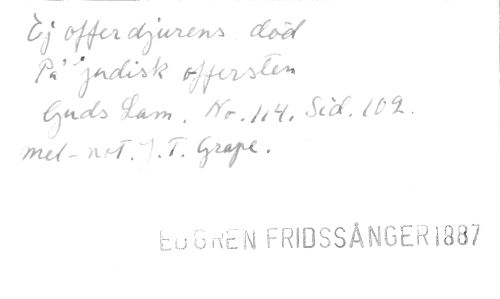 Ej offerdjurens död
På judisk offersten
Guds Lam. No. 114. Sid. 102.
mel-not. J. T. Grape.
EDGREN FRIDSSÅNGER 1887